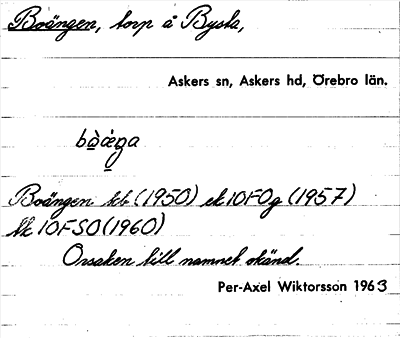 Boängen, torp å Bysta,
Askers sn, Askers hd, Örebro län.
bò̱æŋa
Boängen kb (1950) ek 10FOg (1957)
bk 10FSO (1960)
Orsaken till namnet okänd.
Per-Axel Wiktorsson 1963